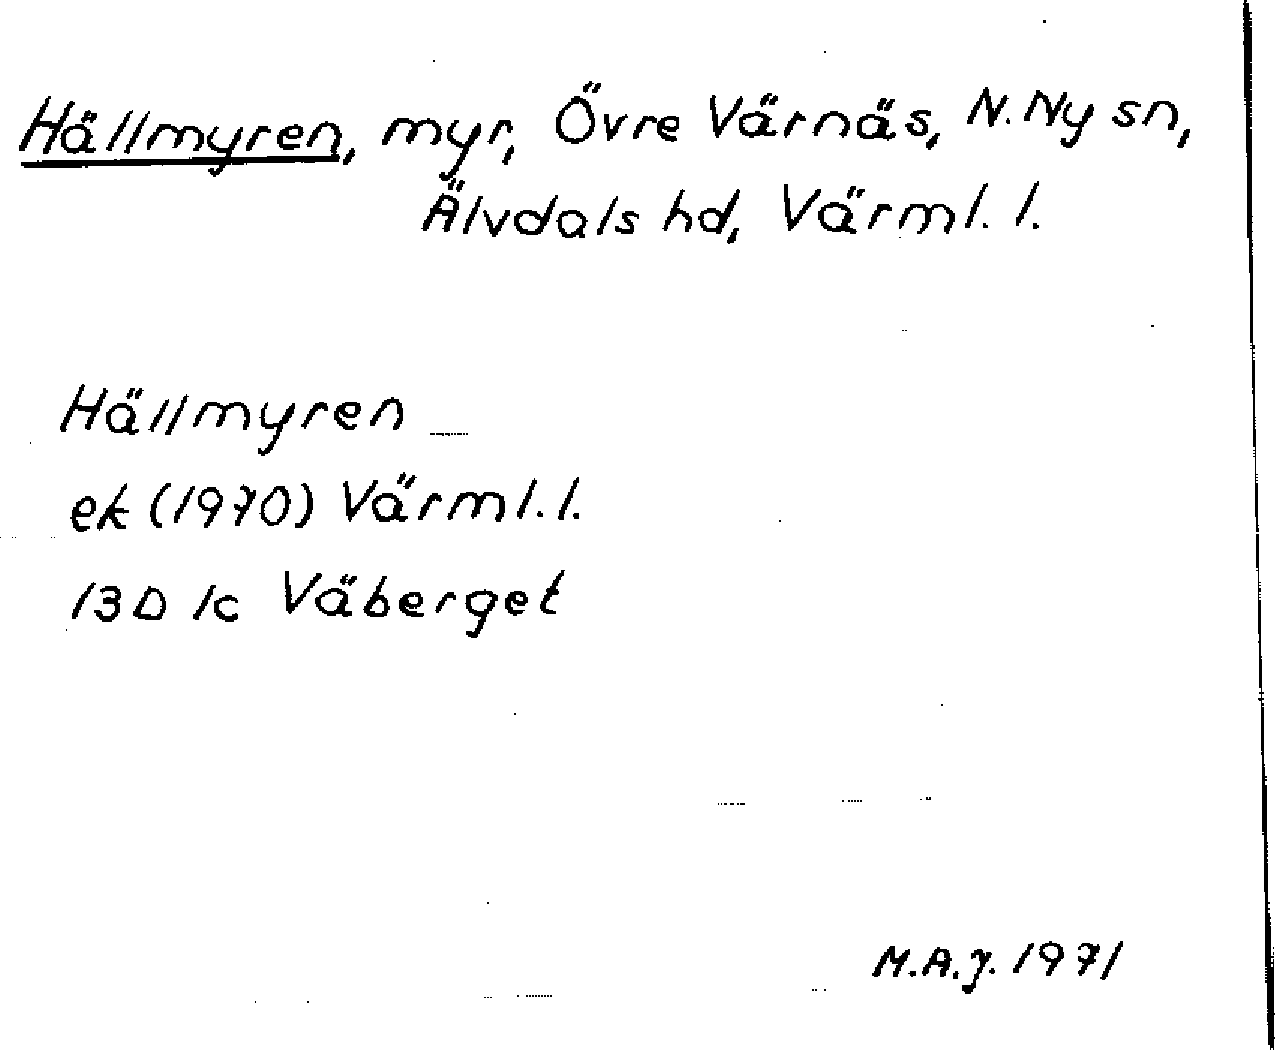 Hällmyren, myr, Övre Värnäs, N. Ny sn,
Älvdals hd, Värml. l.
Hällmyren
ek (1970) Värml. l.
13D 1c Väberget
M.A.J. 1971